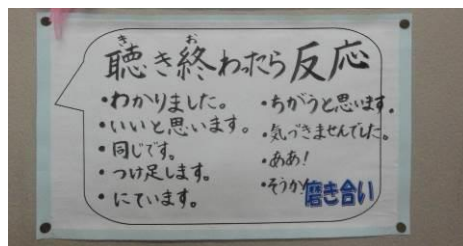 聴き終わったら反応
・わかりました。
・いいと思います。
・同じです。
・つけ足します。
・にています。
・ちがうと思います。
・気づきませんでした。
・ああ！
・そうか！
磨き合い